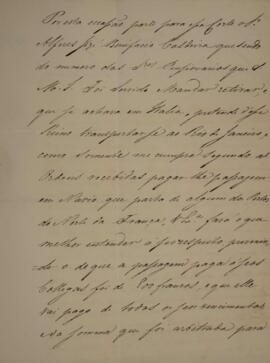 Por esta occasião parte para essa Corte o Sr.
Alferes Je. Bonifacio Caldeira que sendo
do numero dos Srs. Pensionarios que S.
M. I. foi servido Mandar retirar e
que se achava em Italia, pretende desse
Reino transportar-se ao Rio de Janeiro,
e como somente me cumpra segundo as
Ordens recebidas pagar-lhe passagem
em Navio que parta de algum dos Portos
do Norte da França, V. Sa. fará o que
melhor entender a seo respeito, preve-
do o de que a passagem paga a seos
Collegas foi de francos, e que elle
vai pago de todos os seos vencimentos
na somma que foi arbitrada para